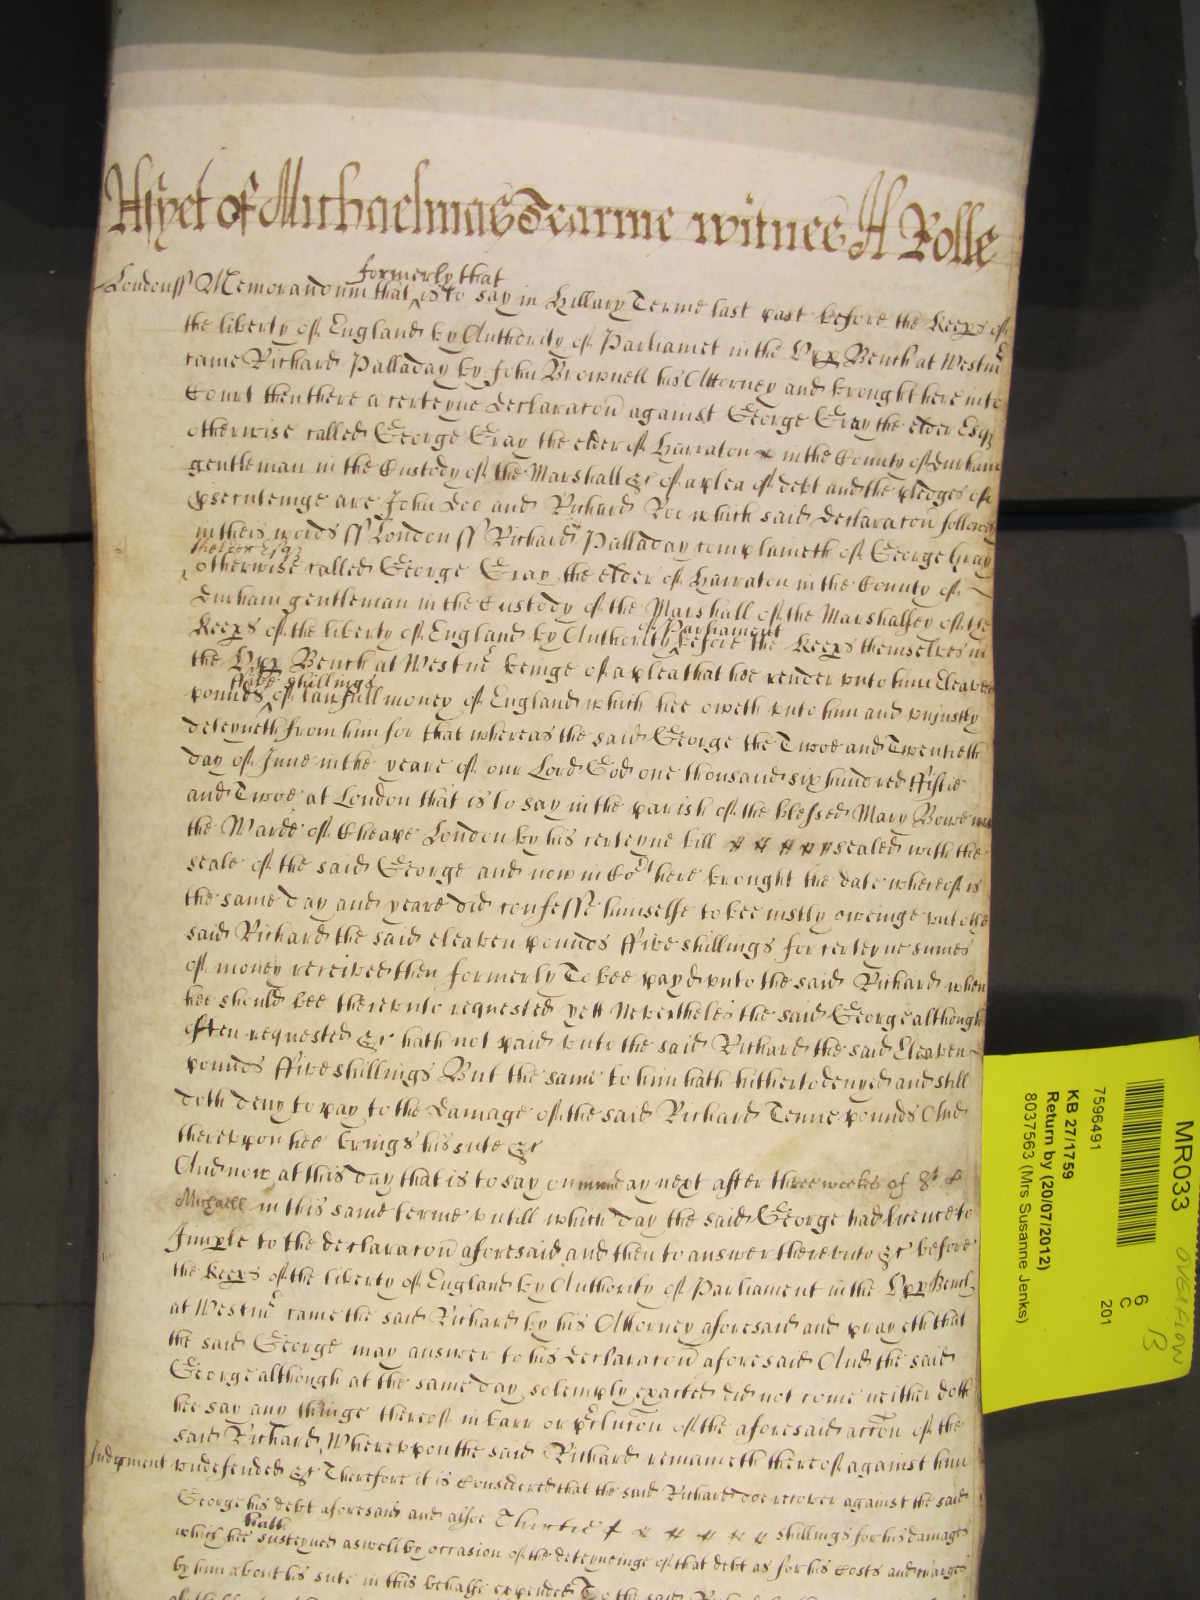 As yet of Michaelmas Tearme witnes H Rolle
formerly that
London ss Memorandum that is to say in Hillary Terme last past before the Keeps of
the liberty of England by Authority of Parliamet in the Upp Bench at Westm
came Richard Palladay by John Brownell his Attorney and brought here into
Court then there a certeyne declaraton against George Gray the elder Esq
otherwise called George Gray the elder of Harraton in the County of Durham
gentleman in the Custody of the Marshall &c of a plea of debt and the pledges of
psecuteinge are John Doo and Richard Roo which said declaraton followes
in theis words ss London ss Richard Palladay complaineth of George Gray
the elder Esq
otherwise called George Gray the elder of Harraton in the County of
Durham gentleman in the Custody of the Marshall of the Marshalsey of the
of Parliament
Keeps of the liberty of England by Authority before the Keeps themselves in
the Upp Bench at Westm beinge of a plea that hee render unto him Eleaven
ffive shillings
pounds of lawfull money of England which hee oweth unto him and unjustly
deteyneth from him for that whereas the said George the Twoe and Twentieth
day of June in the yeare of our Lord God one thousand six hundred ffiftie
and Twoe at London that is to say in the parish of the blessed Mary Bowe in
the Warde of Cheape London by his certeyne bill sealed with the
seale of the said George and now in Cort here brought the date whereof is
the same day and yeare did confesse himselfe to bee justly oweinge unto the
said Richard the said eleaven pounds ffive shillings for certeyne sumes
of money received then formerly To bee payd unto the said Richard when
hee should bee thereunto requested yett Nevertheles the said George although
often requested &c hath not paid unto the said Richard the said Eleaven
pounds ffive shillings But the same to him hath hitherto denyed and still
doth deny to pay to the damage of the said Richard Tenne pounds And
thereupon hee brings his sute &c
And now at this day that is to say on munday next after three weekes of St
Michaell in this same terme untill which day the said George had licence to
Imple to the declaraton aforesaid and then to answer thereunto &c before
the Keeps of the liberty of England by Authority of Parliament in the Upp Bench
at Westm came the said Richard by his Attorney aforesaid and prayeth that
the said George may answer to his declaraton aforesaid And the said
George although at the same day solemply exacted did not come neither doth
hee say any thinge thereof in barr or pcluton of the aforesaid accon of the
said Richard Whereuppon the said Richard remaineth thereof against him
Judgment undefended &c Therefore it is Considered that the said Richard doe recover against the said
George his debt aforesaid and alsoe Thirtie shillings for his damages
hath
which hee susteyned aswell by occasion of the deteyneinge of that debt as for his Costs and charges
by him about his sute in this behalfe expended To the said
MR033
OVERFLOW
B
7596491
6
C
201
KB 27/1759
Return by (20/07/2012)
8037563 (Mrs Susanne Jenks)